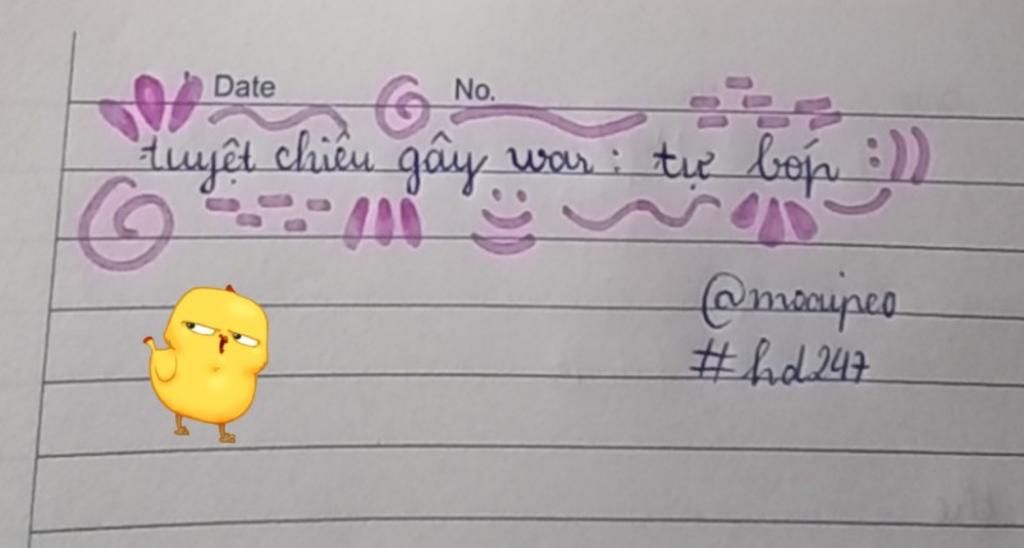 Date No.
tuyệt chiêu gây war : tự bóp :))
@moaipeo
#hd247